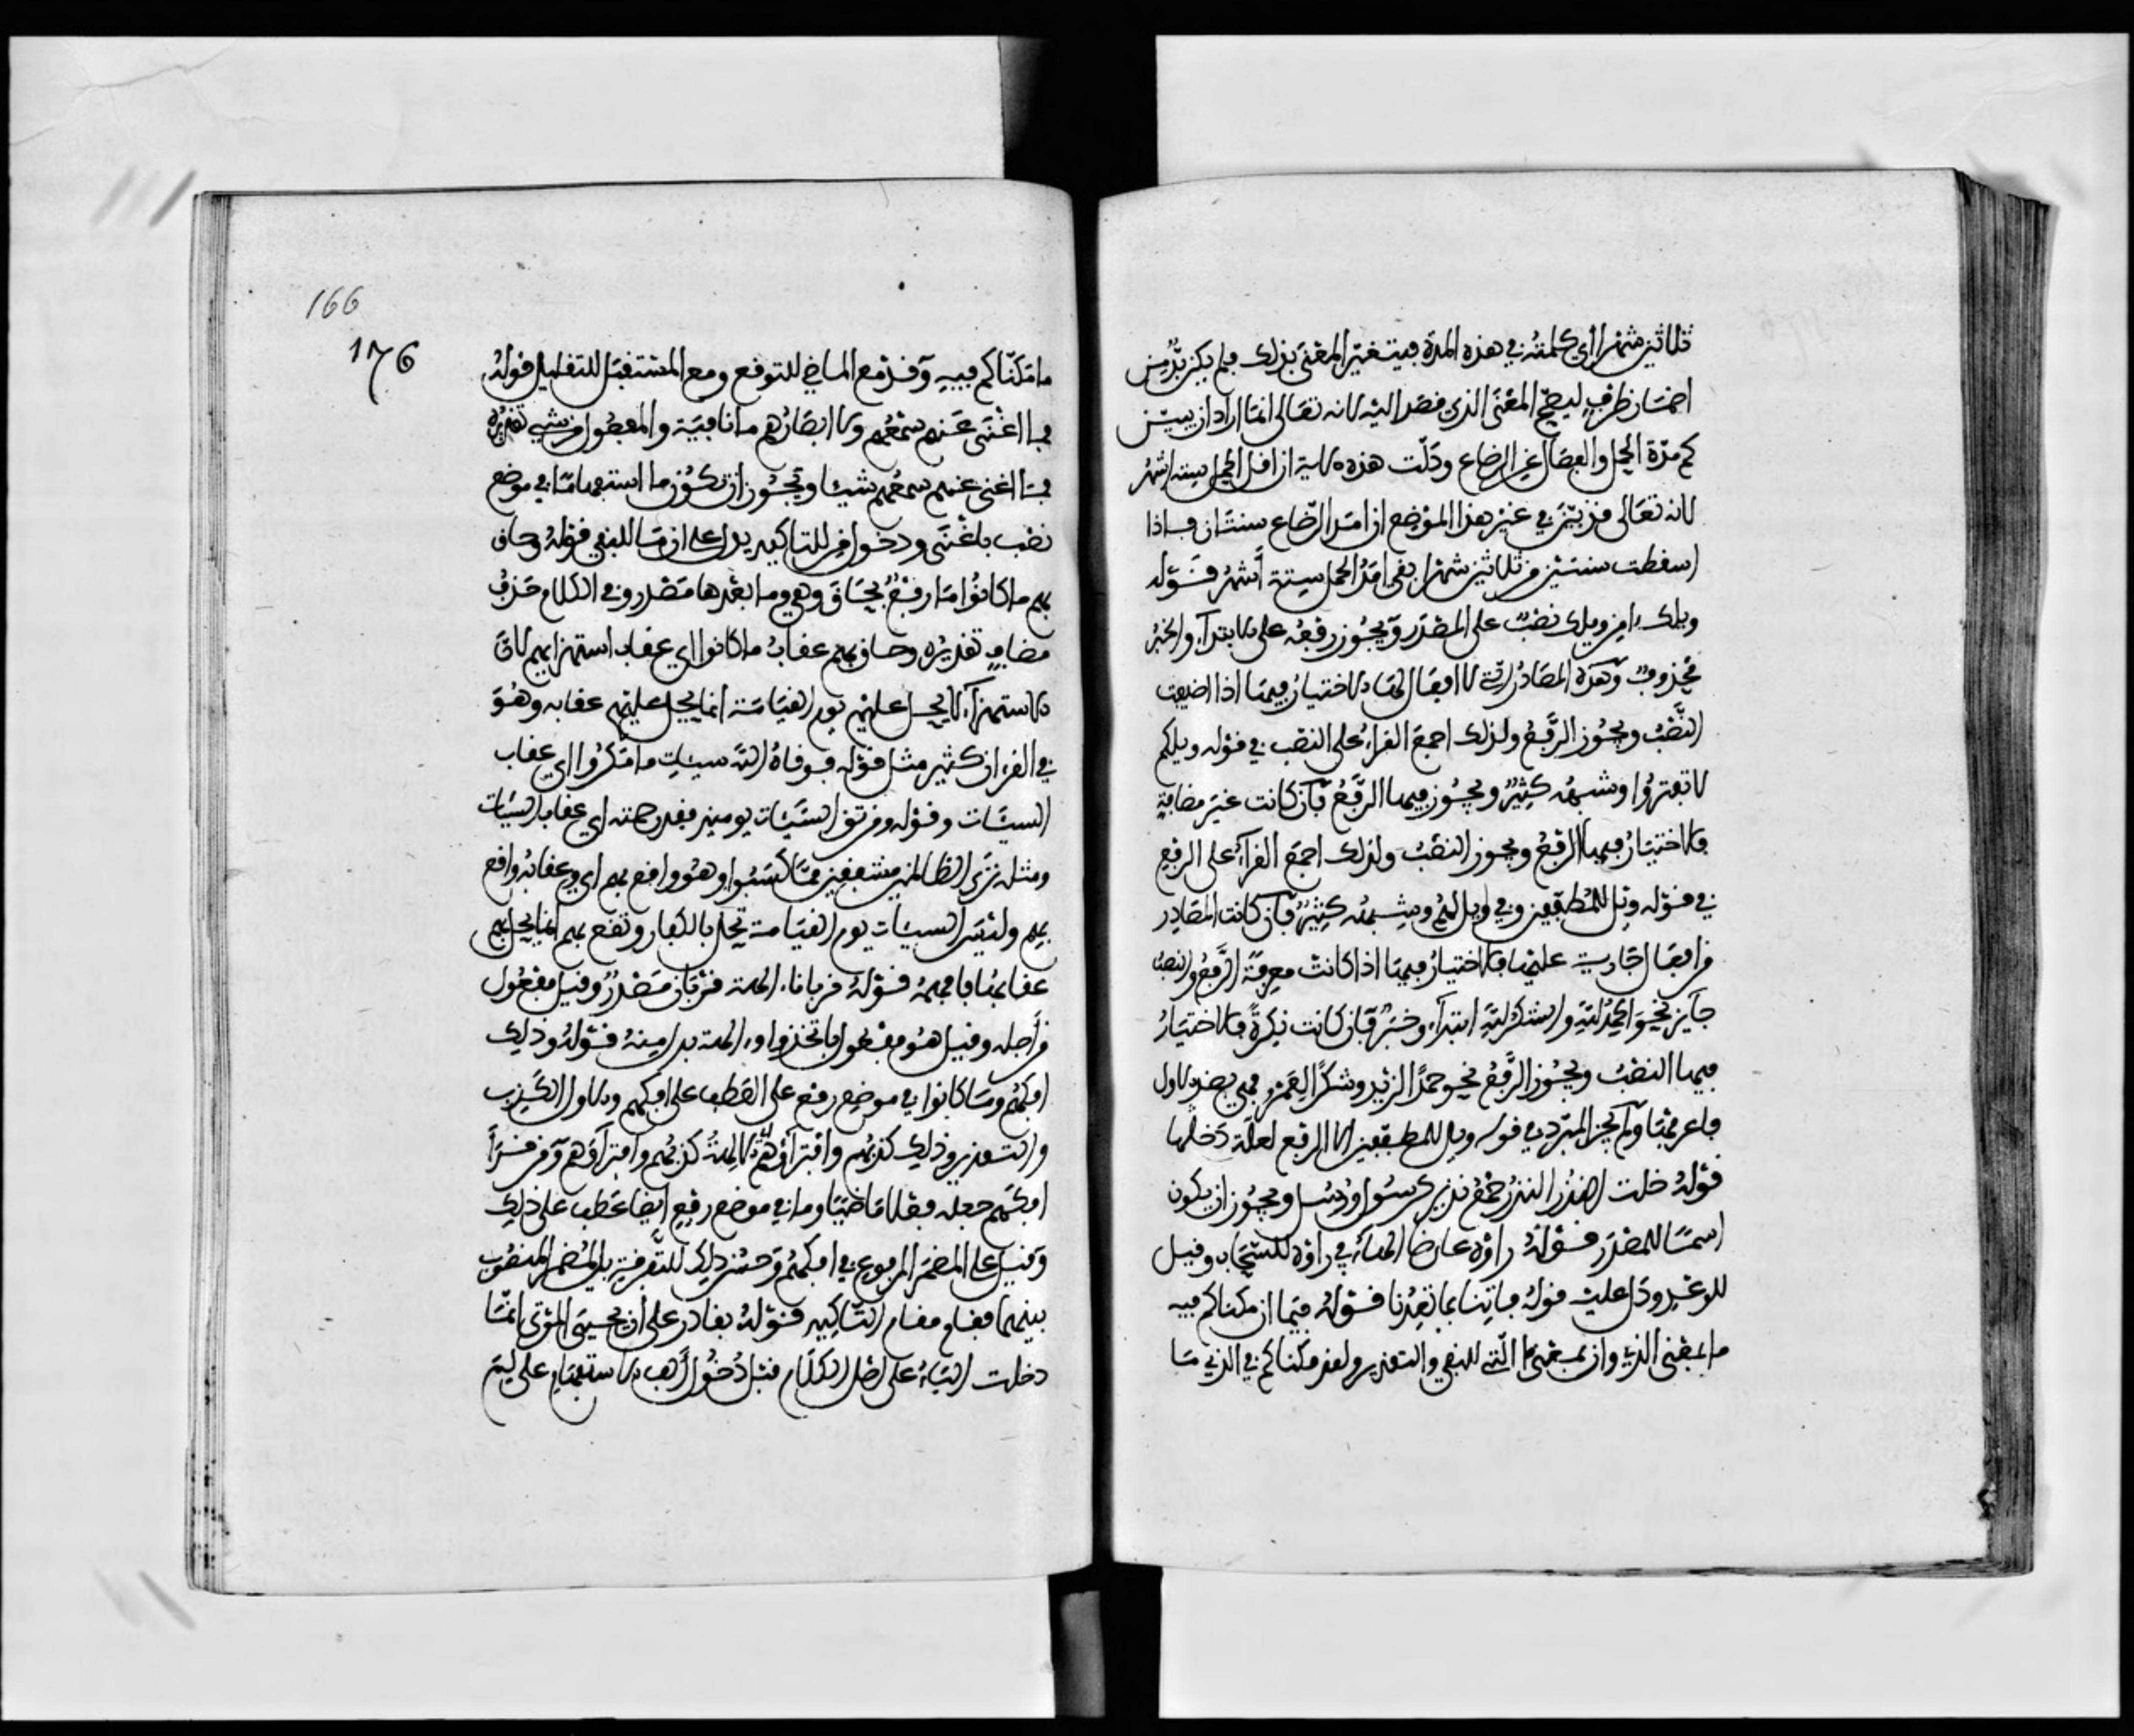 ثلاثين شهرا اي كلمته في هذه المدة فيتغير المعنى بذلك فلم يكن بد من
اضمار ظرف ليصح المعنى الذي قصد اليه لانه تعالى انما اراد ان يبين
كم مدة الحمل والفصال عن الرضاع ودلت هذه الاية ان اقل الحمل ستة اشهر
لانه تعالى قد بين في غير هذا الموضع ان امد الرضاع سنتان فاذا
اسقطت سنتين من ثلاثين شهرا بقي امد الحمل ستة أشهر قوله
ويلك ءامن ويلك نصب على المصدر ويجوز رفعه على الابتداء والخبر
محذوف وهذه المصادر التي لا افعال لها الاختيار فيها اذا اضيفت
النصب ويجوز الرفع ولذلك اجمع القراء على النصب في قوله ويلكم
لا تفتروا وشبهه كثير ويجوز فيها الرفع فان كانت غير مضافة
فالاختيار فيها الرفع ويجوز النصب ولذلك اجمع القراء على الرفع
في قوله ويل للمطففين وفويل لهم وشبهه كثير فان كانت المصادر
من افعال جارية عليها فالاختيار فيها اذا كانت معرفة الرفع والنصب
جايز نحو الحمد لله والشكر لله ابتداء وخبر فان كانت نكرة فالاختيار
فيها النصب ويجوز الرفع نحو حمدا لزيد وشكرا لعمرو فهي بضد الاول
فاعرفها ولم يجز المبرد في قوله ويل للمطففين الا الرفع لعلة دخلها
قوله خلت النذر النذر جمع نذير كرسول ورسل ويجوز ان يكون
اسما للمصدر قوله راوه عارضا الهاء في راوه للسحاب وقيل
للوعد ودل عليه قوله فاتنا بما تعدنا قوله فيما ان مكناكم فيه
ما بمعنى الذي وان بمعنى ما التي للنفي والتقدير ولقد مكناكم في الذي ما
166
176
ما مكناكم فيه وقد مع الماضي للتوقع ومع المستقبل للتقليل قوله
فما اغنى عنهم سمعهم ولا ابصارهم ما نافية والمفعول من شيء تقديره
فما اغنى عنهم سمعهم شيئا ويجوز ان تكون ما استفهاما في موضع
نصب باغنى ودخول من للتاكيد يدل على ان ما للنفي قوله وحاق
بهم ما كانوا ما رفع بحاق وهي وما بعدها مصدر وفي الكلام حذف
مضاف تقديره وحاق بهم عقاب ما كانوا اي عقاب استهزايهم لان
الاستهزاء لا يحل عليهم يوم القيامة انما يحل عليهم عقابه وهو
في القرءان كثير مثل قوله فوقاه الله سيئات ما مكروا اي عقاب
السيئات وقوله ومن تق السيئات يوميذ فقد رحمته اي عقاب السيئات
ومثله ترى الظالمين مشفقين مما كسبوا وهو واقع بهم اي وعقابه واقع
بهم وليس السيئات يوم القيامة تحل بالكفار وتقع بهم انما يحل بهم
عقابها فافهمه قوله قربانا ءالهة قربان مصدر وقيل مفعول
من أجله وقيل هو مفعول باتخذوا وءالهة بدل منه قوله وذلك
افكهم وما كانوا في موضع رفع على العطف على افكهم والاول الكذب
والتقدير وذلك كذبهم وافتراؤهم الالهة كذبهم وافتراؤهم ومن قرأ
افكهم جعله فعلا ماضيا وما في موضع رفع ايضا عطف على ذلك
وقيل على المضمر المرفوع في افكهم وحسن ذلك للتفرقة بالمضمر المنصوب
بينهما فقام مقام التاكيد قوله بقادر على ان يحيي الموتى انما
دخلت الباء على اصل الكلام قبل دخول ألف الاستفهام على ليس